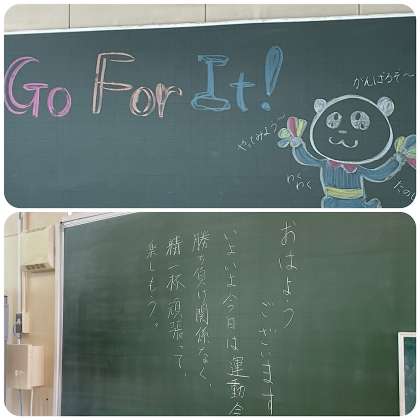 Go For It!
がんばろぞ〜
やってみよう〜
わく
わく
たの
おはよう
ございます
いよいよ今日は運動会
勝ち負け関係なく、
精一杯頑張って、
楽しもう。